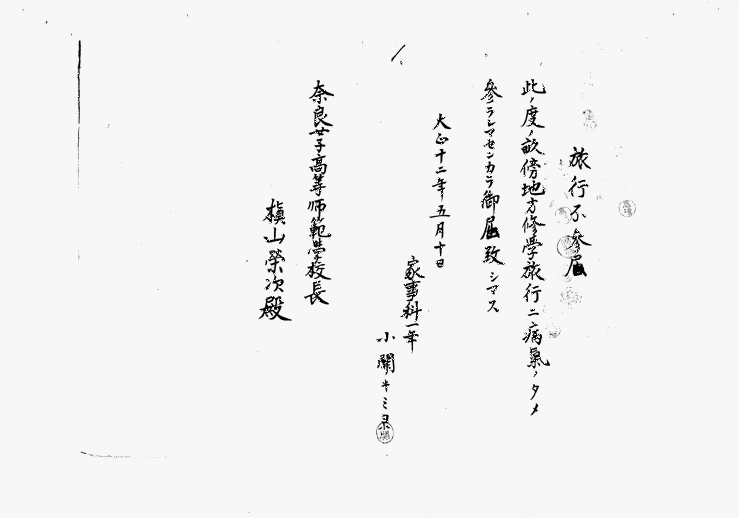 旅行不參届
此ノ度ノ畝傍地方修學旅行ニ病氣ノタメ
參ラレマセンカラ御届致シマス
大正十二年五月十日
家事科一年
小關キミ
奈良女子高等師範學校長
槇山榮次殿